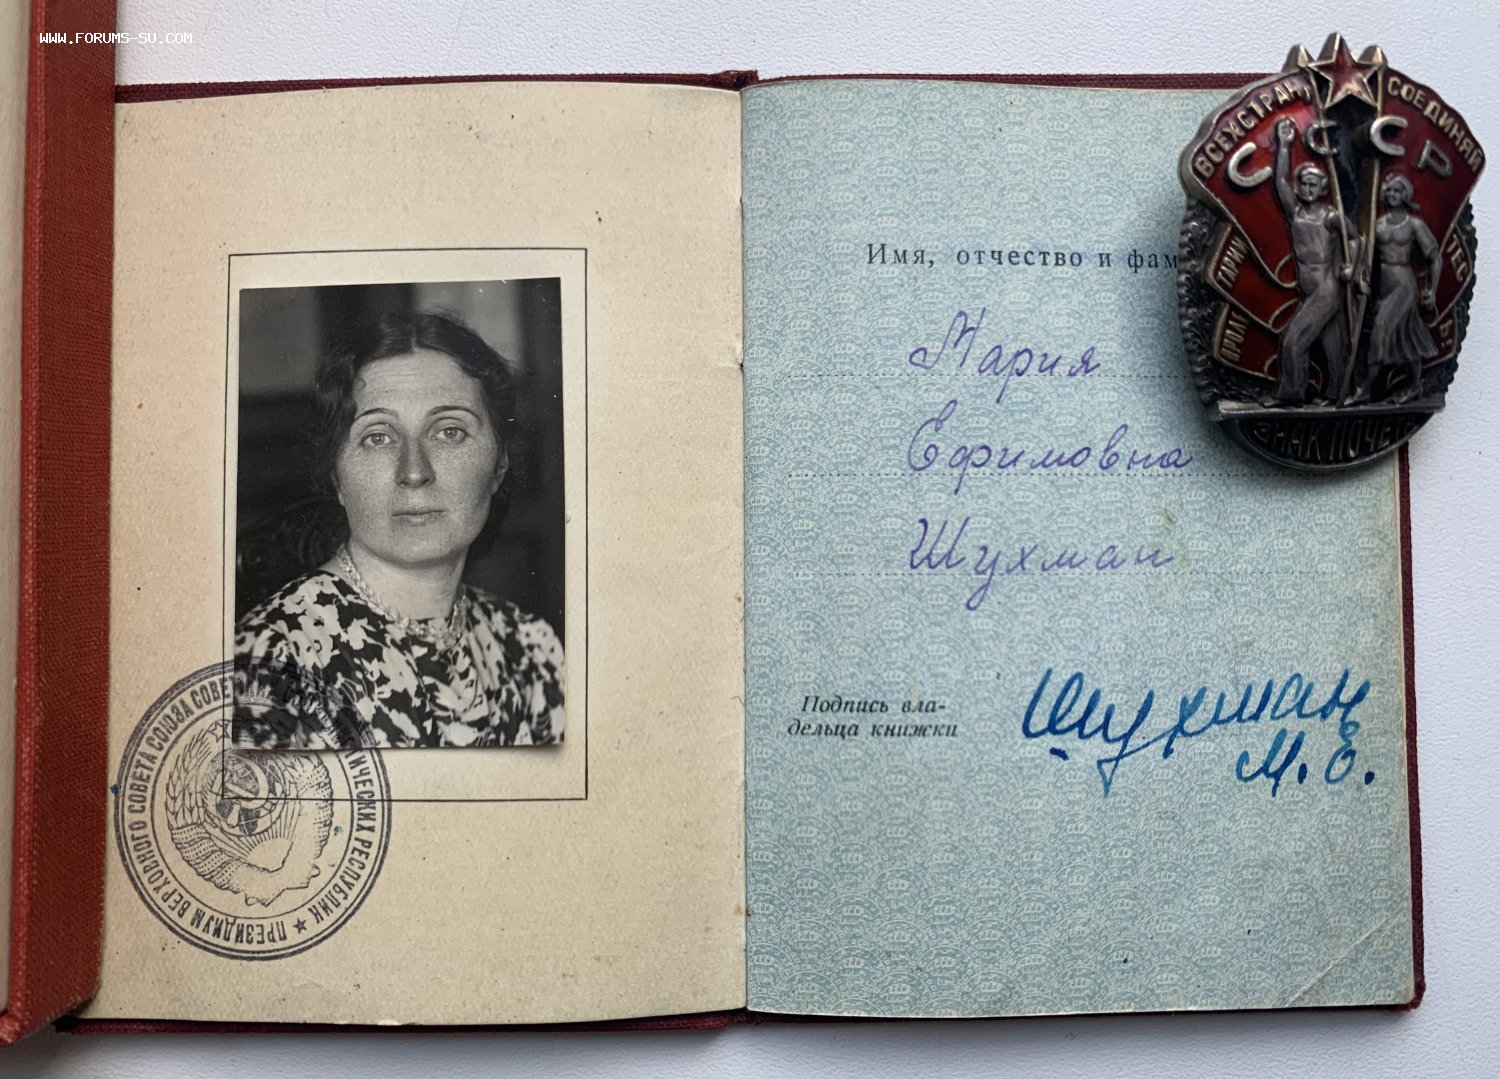 WWW.FORUMS-SU.COM
ПРЕЗИДИУМ ВЕРХОВНОГО СОВЕТА СОЮЗА СОВЕТСКИХ РЕСПУБЛИК
Имя, отчество и фам
Мария
Ефимовна
Шухман
Подпись вла-
дельца книжки
Шухман
М.Е.
ВСЕХ СТРАН, СОЕДИНЯЙ
СССР
ПРОЛЕТАРИИ
ТЕСЬ!
ЗНАК ПОЧЕ